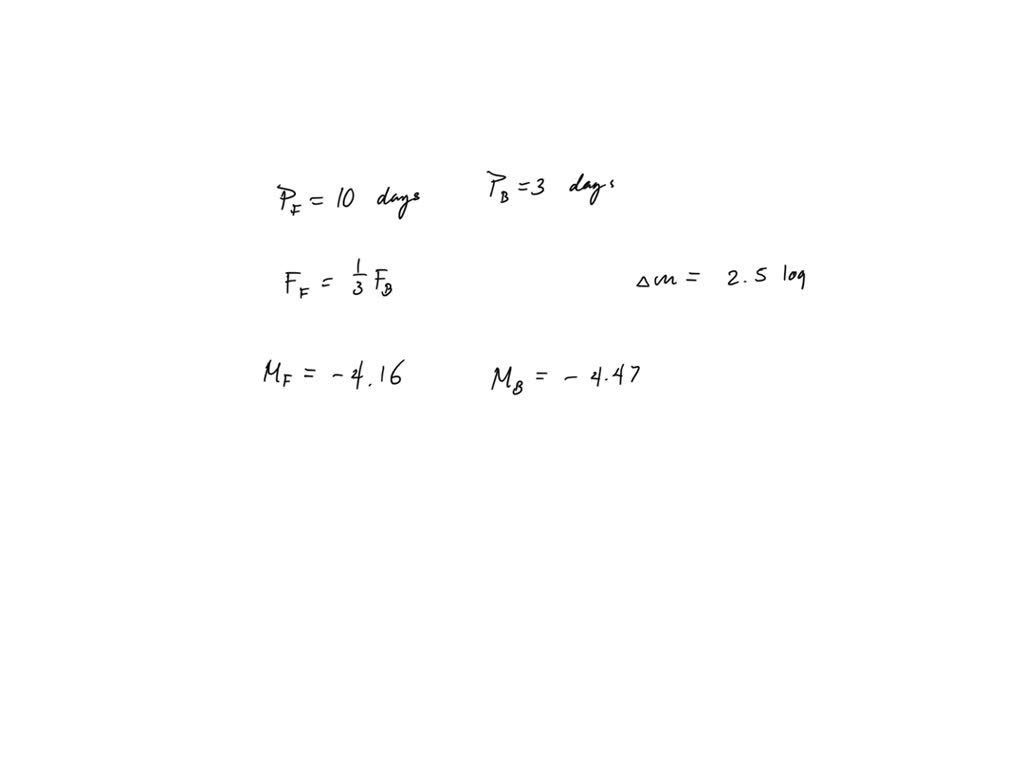 P_F = 10 days P_B = 3 days
F_F = 1/3 F_B Δm = 2.5 log
M_F = -4.16 M_B = -4.47